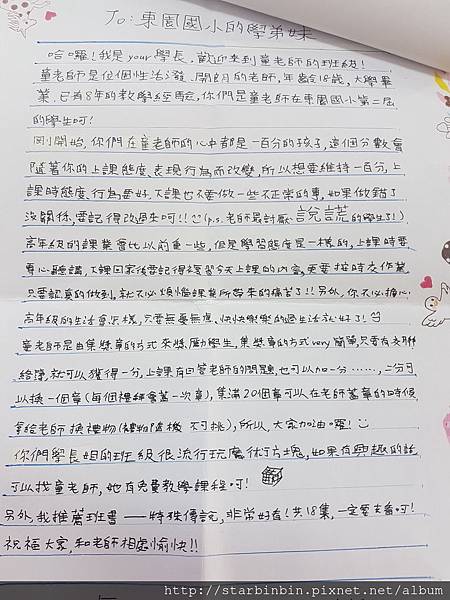 To: 東園國小的學弟妹
哈囉!我是your學長,歡迎來到童老師的班級!
童老師是位個性活潑、開朗的老師,年齡18歲,大學畢
業,已有8年的教學經驗,你們是童老師在東園國小第二屆
的學生呵!
剛開始,你們在童老師的心中都是一百分的孩子,這個分數會
隨著你的上課態度、表現行為而改變,所以想要維持一百分,上
課時態度、行為要好,下課也不要做一些不正常的事,如果做錯了
沒關係,要記得改過來呵!!(p.s.老師最討厭說謊的學生了!)
高年級的課業會比以前重一些,但是學習態度是一樣的,上課時要
專心聽講,下課回家後要記得複習今天上課的內容,更要按時交作業
只要認真的做到,就不必煩惱課業所帶來的痛苦了!!另外,你不必擔心
高年級的生活會怎樣,只要無憂無慮、快快樂樂的過生活就好了!
童老師是由集獎章的方式來獎勵學生,集獎章的方式very簡單,只要有去聯
給簿,就可以獲得一分,上課有回答老師的問題,也可以加一分……,二分可
以換一個章(每個禮拜會蓋一次章),集滿20個章可以在老師蓋章的時候
拿給老師換禮物(禮物隨機 不可挑),所以,大家加油囉!
你們學長姐的班級很流行玩魔術方塊,如果有興趣的話
可以找童老師,她有免費教學課程呵!
另外,我推薦班書——特殊傳說,非常好看!共18集,一定要去看呵!
祝福大家,和老師相處愉快!!
http://starbinbin.pixnet.net/album